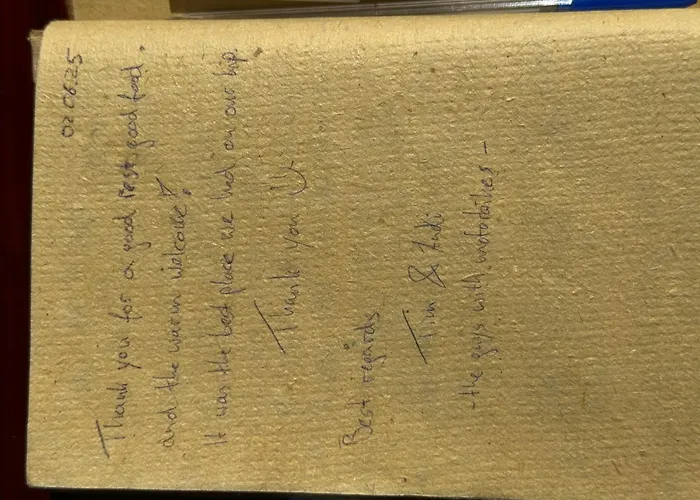 02.06.25
Thank you for a good rest, good food,
and the warm welcome!
It was the best place we had on our trip.
Thank you
Best regards
Tim & Andi
- the guys with motorbikes -